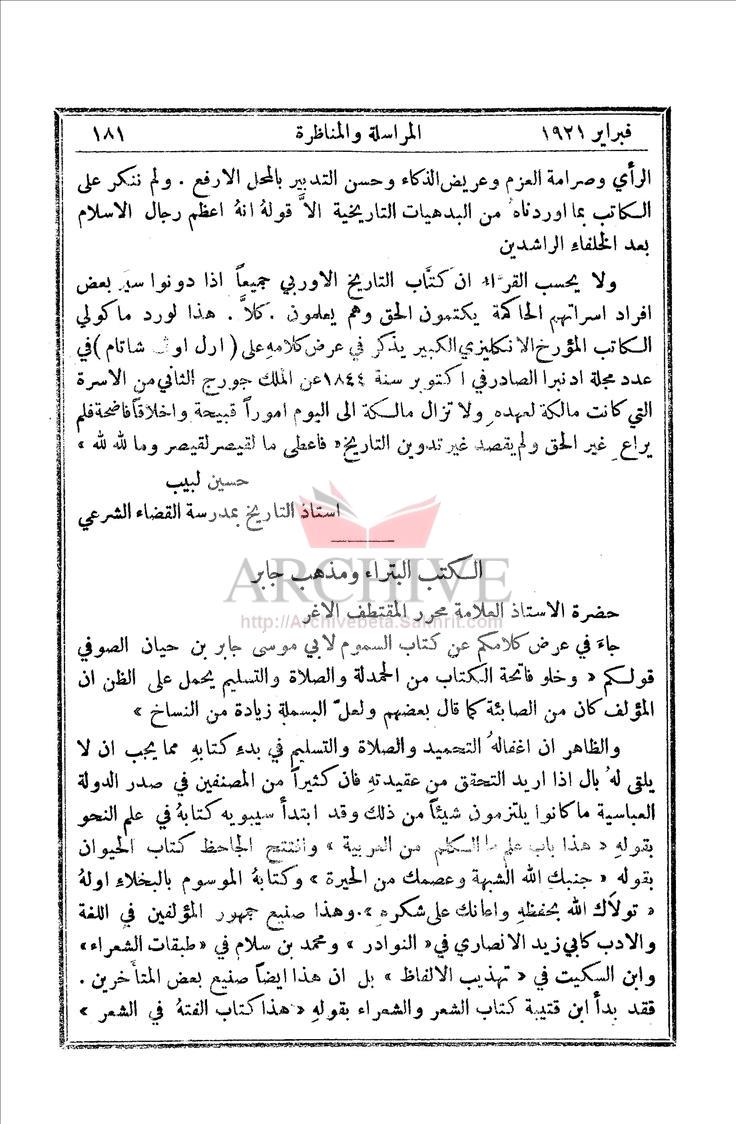 فبراير ١٩٢١ المراسلة والمناظرة ١٨١
الرأي وصرامة العزم وعريض الذكاء وحسن التدبير بالمحل الارفع . ولم ننكر على
الكاتب بما اوردناهُ من البدهيات التاريخية الاَّ قولهُ انهُ اعظم رجال الاسلام
بعد الخلفاءِ الراشدين
ولا يحسب القرَّاء ان كتَّاب التاريخ الاوربي جميعاً اذا دونوا سير بعض
افراد اسراتهم الحاكمة يكتمون الحق وهم يعلمون . كلاَّ . هذا لورد ماكولي
الكاتب المؤرخ الانكليزي الكبير يذكر في عرض كلامه على ( ارل اوف شاتام ) في
عدد مجلة ادنبرا الصادر في اكتوبر سنة ١٨٤٤ عن الملك جورج الثاني من الاسرة
التي كانت مالكة لعهدهِ ولا تزال مالكة الى اليوم اموراً قبيحة واخلاقاً فاضحة فلم
يراعِ غير الحق ولم يقصد غير تدوين التاريخ « فاعطى ما لقيصر لقيصر وما لله لله »
حسين لبيب
استاذ التاريخ بمدرسة القضاء الشرعي
ARCHIVE
الكتب البتراء ومذهب جابر
http://Archivebeta.Sakhrit.com
حضرة الاستاذ العلامة محرر المقتطف الاغر
جاءَ في عرض كلامكم عن كتاب السموم لابي موسى جابر بن حيان الصوفي
قولكم « وخلو فاتحة الكتاب من الحمدلة والصلاة والتسليم يحمل على الظن ان
المؤلف كان من الصابئة كما قال بعضهم ولعلّ البسملة زيادة من النساخ »
والظاهر ان اغفالهُ التحميد والصلاة والتسليم في بدءِ كتابهِ مما يجب ان لا
يلقى لهُ بال اذا اريد التحقق من عقيدتهِ فان كثيراً من المصنفين في صدر الدولة
العباسية ما كانوا يلتزمون شيئاً من ذلك وقد ابتدأ سيبويه كتابهُ في علم النحو
بقولهِ « هذا باب علم ما الكلم من العربية » وافتتح الجاحظ كتاب الحيوان
بقوله « جنبك الله الشبهة وعصمك من الحيرة » وكتابهُ الموسوم بالبخلاءِ اولهُ
« تولاَّك الله بحفظهِ واعانك على شكرهِ ». وهذا صنيع جمهور المؤلفين في اللغة
والادب كابي زيد الانصاري في « النوادر » ومحمد بن سلام في « طبقات الشعراء »
وابن السكيت في « تهذيب الالفاظ » بل ان هذا ايضاً صنيع بعض المتأخرين .
فقد بدأ ابن قتيبة كتاب الشعر والشعراء بقولهِ « هذا كتاب الفتهُ في الشعر »